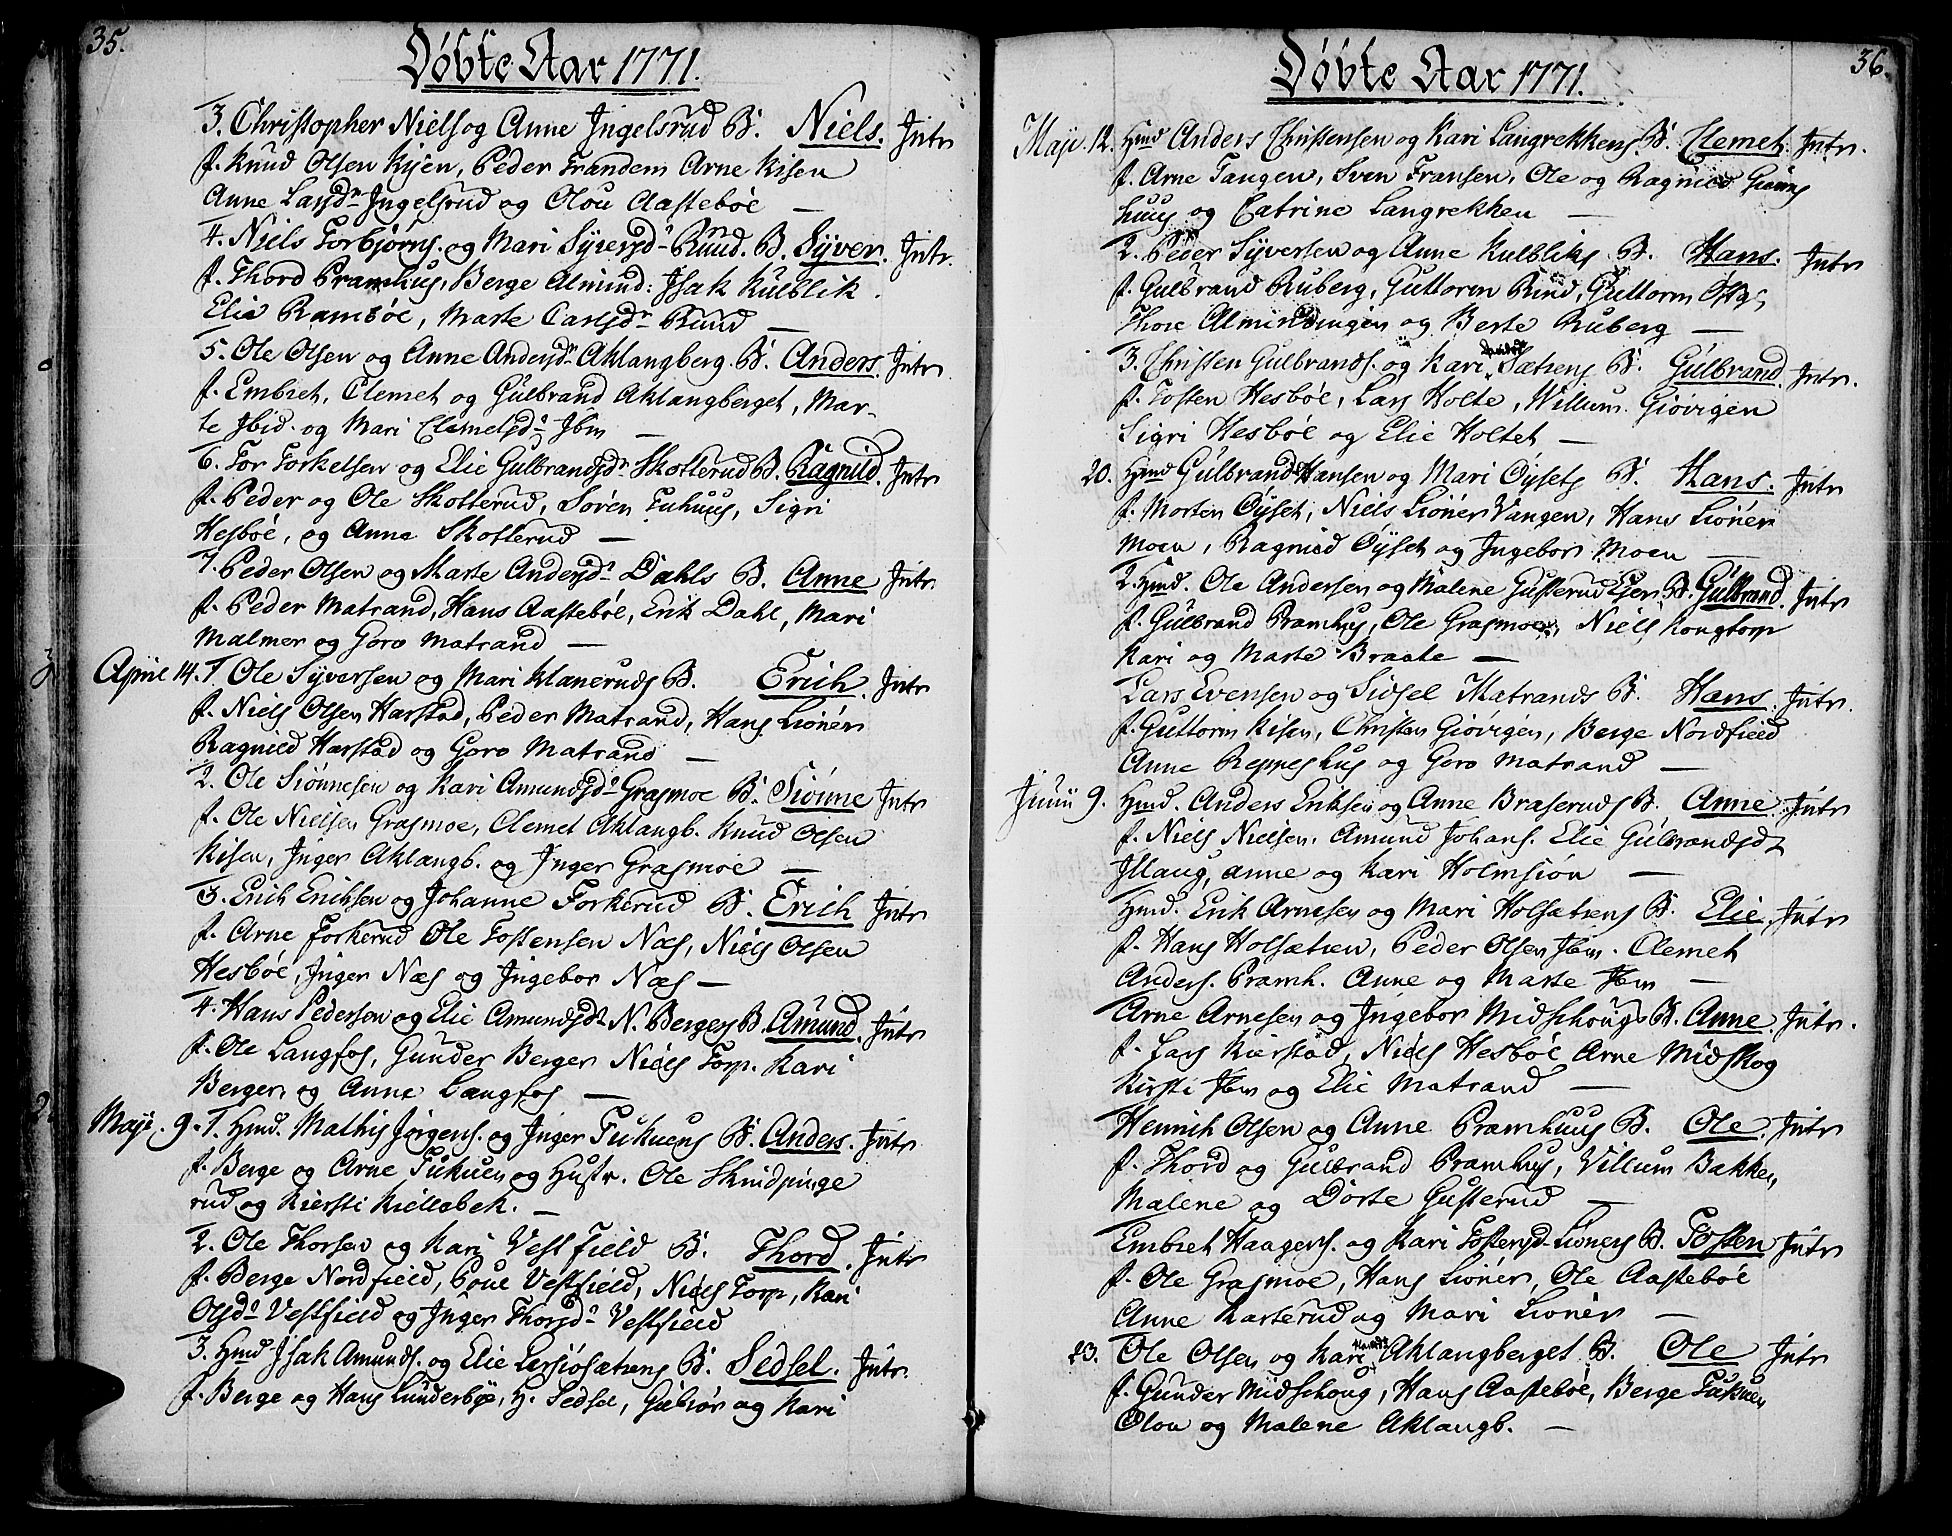 35.
Döbte Aar 1771.
3. Christopher Niels. og Anne Ingelsrud B. Niels. Intr
f. Knud Olsen Kisen, Peder Frandsen Arne Kisen
Anne Larsdr Ingelsrud og Olou Aastebøe —
4. Niels Torbjørns. og Mari Syversdr Ruud. B. Syver. Intr.
f. Thord Pramhus, Berge Almind: Isak Kulblik.
Elie Rambøe, Marte Carlsdr Ruud —
5. Ole Olsen og Anne Andersdr Aklangberg. B. Anders. Intr
f. Embret, Clemet og Gulbrand Aklangberget, Mar-
te Ibid. og Mari Clemetsdr Ibm —
6. Tor Torkelsen og Elie Gulbrandsdr Skotterud B. Ragnild. Intr
f. Peder og Ole Skotterud, Søren Tuhuus, Sigri
Hesbøe, og Anne Skotterud —
7. Peder Olsen og Marte Andersdr Dahls B. Anne Intr.
f. Peder Matrand, Hans Aastebøe, Erik Dahl, Mari
Malmer og Goro Matrand —
April 14. 1 Ole Syversen og Mari Klaneruds B. Erich. Intr
f. Niels Olsen Harstad, Peder Matrand, Hans Liøner
Ragnild Harstad og Goro Matrand —
2. Ole Siønnesen og Kari Amundsdr Grasmoe B. Siønne Intr
f. Ole Nielsen Grasmoe, Clemet Aklangb. Knud Olsen
Kisen, Inger Aklangb. og Inger Grasmoe —
3. Erich Eriksen og Johanne Forkerud B. Erich Intr
f. Arne Forkerud Ole Tostensen Næs, Niels Olsen
Hesbøe, Inger Næs og Ingebor Næs —
4. Hans Pedersen og Elie Amundsdr N. Berger B. Amund. Intr
f. Ole Langfos, Gunder Berger Niels Torp. Kari
Berger, og Anne Langfos —
Maji. 9. 1. Hmd. Mathis Jørgens. og Inger Tukuens B. Anders. Intr
f. Berge og Arne Tukuen og Hustr. Ole Skindpunge
rud og Kiersti Kiellebek. —
2. Ole Thorsen og Kari Vestfield B. Thord. Intr
f. Berge Nordfield, Poul Vestfield, Niels Torp, Kari
Olsdr Vestfield og Inger Thorsdr Vestfield
3. Hmd Isak Amunds. og Elie Lersiøsætrens B. Sedsel. Intr.
f. Berge og Hans Lunderbye, H. Sedsel, Gubiør og Kari
36.
Döbte Aar 1771.
Maji. 12. Hmd Anders Christensen og Kari Langrekkens. B. Clemet. Intr.
f. Arne Tangen, Sven Fransen, Ole og Ragnild Giems
huus og Catrine Langrekken —
2. Peder Syversen og Anne Kulbliks B. Hans. Intr
f. Gulbrand Ruberg, Guttorm Rud, Guttorm
Thore Almindingen og Berte Ruberg —
3. Christen Gulbrands. og Kari Sætrens B. Gulbrand. Intr.
f. Tosten Hesbøe, Lars Holte, Willum Giøvigen
Sigri Hesbøe og Elie Holtet —
20. Hmd Gulbrand Hansen og Mari Øysets B. Hans. Intr
f. Morten Øyset, Niels Liøner Vangen, Hans Liøner
Moen, Ragnild Øyset og Ingebor Moen —
2. Hmd. Ole Andersen og Malene Gusterud Ejer B. Gulbrand. Intr
f. Gulbrand Pramhus, Ole Grasmoe, Niels Kongtorp
Kari og Marte Braate —
Lars Evensen og Sidsel Matrands B. Hans. Intr.
f. Guttorm Kisen, Christen Giøvigen, Berge Nordfield
Anne Reppeshus og Goro Matrand —
Junii 9. Hmd. Anders Eriksen og Anne Braseruds B. Anne. Intr
f. Niels Nielsen. Amund Johans. Elie Gulbrandsdr
Illaug, anne og Kari Holmsiøn —
Hmd. Erik Arnesen og Mari Holsætrens B. Elie. Intr
f. Hans Holsætren, Peder Olsen Ibm. Clemet
Anders. Pramh. Anne og Marte Ibm —
Arne Arnesen og Ingebor Midschougs B. Anne. Intr.
f. Lars Kierstad, Niels Hesbøe Arne Midskog
Kirsti Ibm og Elie Matrand —
Henrich Olsen og Anne Pramhuus B. Ole. Intr
f. Thord og Gulbrand Pramhus, Villum Bakken,
Malene og Dorte Gusterud —
Embret Haagens. og Kari Tostensdr Liøners B. Tosten Intr
f. Ole Grasmoe, Hans Liøner, Ole Aastebøe
Anne Karterud og Mari Liøner —
23. Ole Olsen og Kari Aklangberget B. Ole Intr
f. Gunder Midschoug, Hans Aastebøe, Berge Tukuen
Olou og Malene Aklangb. —